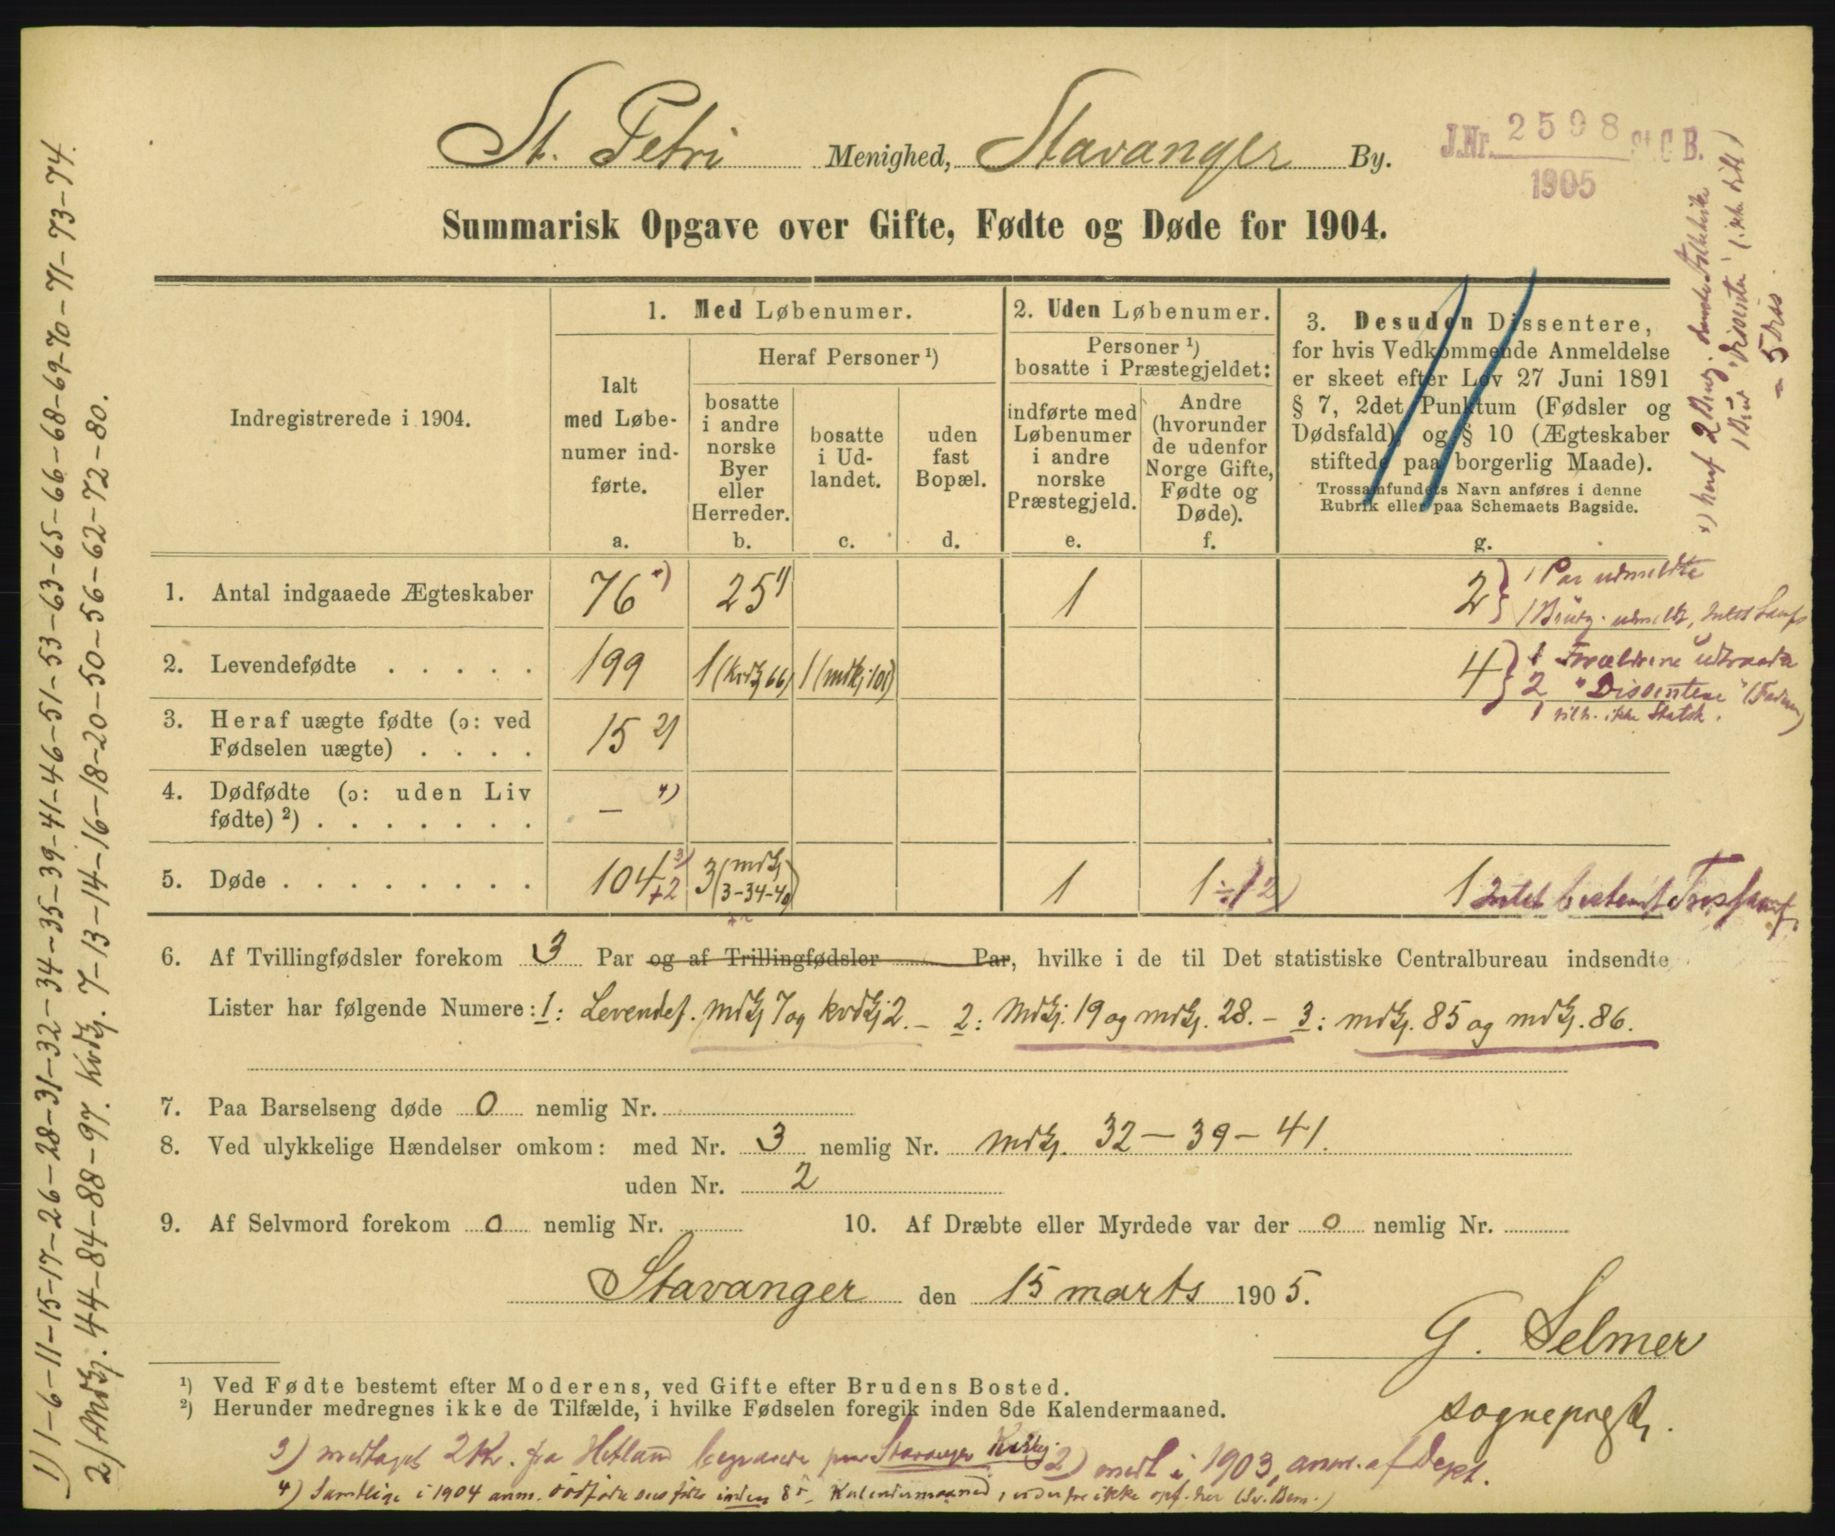 St. Petri Menighed, Stavanger By.
J.Nr. 2598 St.C.B.
1905
Summarisk Opgave over Gifte, Fødte og Døde for 1904.
Indregistrerede i 1904.
1. Med Løbenumer.
Ialt med Løbenumer indførte.
a.
Heraf Personer ¹)
bosatte i andre norske Byer eller Herreder.
b.
bosatte i Udlandet.
c.
uden fast Bopæl.
d.
2. Uden Løbenumer.
Personer ¹) bosatte i Præstegjeldet:
indførte med Løbenumer i andre norske Præstegjeld.
e.
Andre (hvorunder de udenfor Norge Gifte, Fødte og Døde).
f.
3. Desuden Dissentere,
for hvis Vedkommende Anmeldelse
er skeet efter Lov 27 Juni 1891
§ 7, 2det Punktum (Fødsler og
Dødsfald), og § 10 (Ægteskaber
stiftede paa borgerlig Maade).
Trossamfundets Navn anføres i denne
Rubrik eller paa Schemaets Bagside.
g.
1. Antal indgaaede Ægteskaber 76 *) 25 1) 1 2 } 1 Par udmeldte
1 Brudg. udmeldt, intet Samf
2. Levendefødte 199 1 (kvdkj 66) 1 (mdkj. 101) 4 } 1 Forældrene udtraadte
2 "Dissentere" (Faderen)
1 tilh. ikke Statsk.
3. Heraf uægte fødte (ɔ: ved
Fødselen uægte) 15 2)
4. Dødfødte (ɔ: uden Liv
fødte) ²) — 4)
5. Døde 104 3) +2 3 (mdkj 3-34-40) 1 1 ÷1 2) 1 Intet bestemt Trossamf.
6. Af Tvillingfødsler forekom 3 Par og af Trillingfødsler Par, hvilke i de til Det statistiske Centralbureau indsendte
Lister har følgende Numere: 1: Levendef. mdkj 7 og kvdkj 2. – 2: Mdkj. 19 og mdkj. 28. – 3: mdkj. 85 og mdkj. 86.
7. Paa Barselseng døde 0 nemlig Nr.
8. Ved ulykkelige Hændelser omkom: med Nr. 3 nemlig Nr. mdkj. 32 – 39 – 41.
uden Nr. 2
9. Af Selvmord forekom 0 nemlig Nr.
10. Af Dræbte eller Myrdede var der 0 nemlig Nr.
Stavanger den 15 marts 1905.
G. Selmer
sogneprest.
¹) Ved Fødte bestemt efter Moderens, ved Gifte efter Brudens Bosted.
²) Herunder medregnes ikke de Tilfælde, i hvilke Fødselen foregik inden 8de Kalendermaaned.
3) medtaget 2 Kv. fra Hetland begravede paa Stavanger 2) medt i 1903, anm. af Dept.
4) Samtlige i 1904 anm. dødfødte sees født inden 8de Kalendermaaned, ikke opf. her (Sv. Bem.)
1) 1-6-11-15-17-26-28-31-32-34-35-39-41-46-51-53-63-65-66-68-69-70-71-73-74.
2) Mdkj. 44-84-88-97. Kvdkj. 7-13-14-16-18-20-50-56-62-72-80.
*) heraf 2 Brudg.
1 Brud "dissenter" (ikke
- 5 Diss.